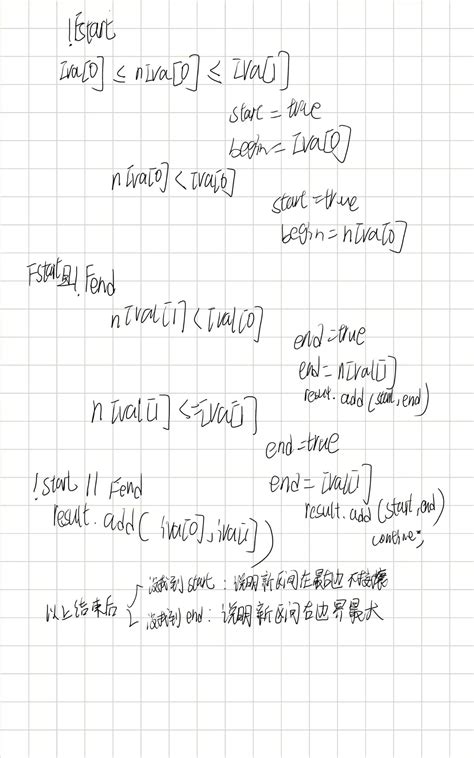 !Fstart
Iva[0] ≤ nIva[0] ≤ Iva[1]
start = true
begin = Iva[0]
nIva[0] < Iva[0]
start = true
begin = nIva[0]
Fstart且!Fend
nIval[1] < Ival[0]
end = true
end = nIval[1]
result.add(start,end)
nIval[1] <= iva[1]
end = true
end = Ival[1]
result.add(start,end)
continue;
!start || Fend
result.add(iva[0],iva[1])
以上结束后
没找到start：说明新区间在最右边不接壤
没找到end：说明新区间右边界最大